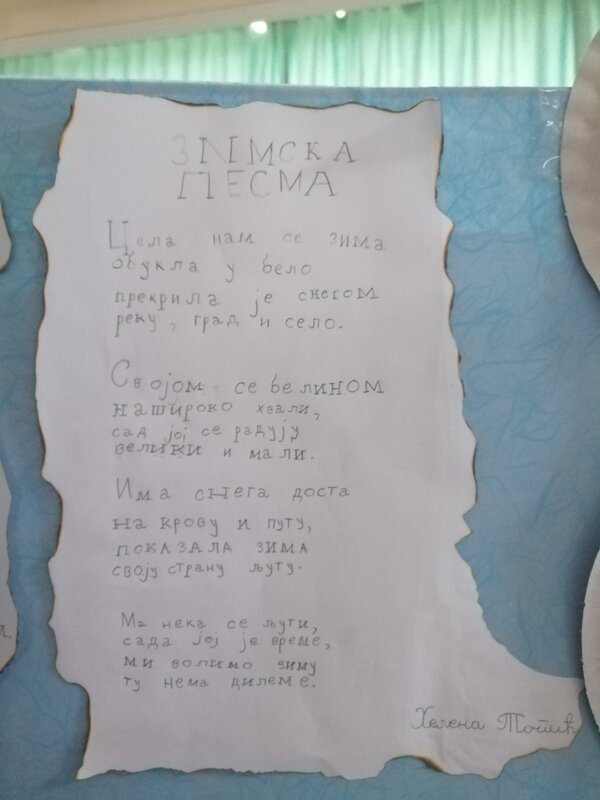 ЗИМСКА
ПЕСМА
Цела нам се зима
обукла у бело
прекрила је снегом
реку, град и село.
Својом се белином
нашироко хвали,
сад јој се радују
велики и мали.
Има снега доста
на крову и путу,
показала зима
своју страну љуту.
Ма нека се љути,
сада јој је време,
ми волимо зиму
ту нема дилеме.
Хелена Тошић